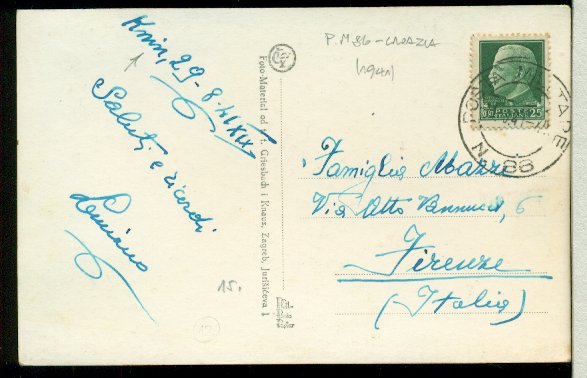 Knin, 29-8-41 XIX
Saluti e ricordi
Luciano
Foto-Material od t. t. Griesbach i Knaus, Zagreb, Jurišićeva 1
P.M 86 - CROAZIA
(1941)
POSTE ITALIANE
25
POSTA MILITARE
N. 86
Famiglia Mazzi
Via Otto Vannucci, 6
Firenze
(Italia)
15.